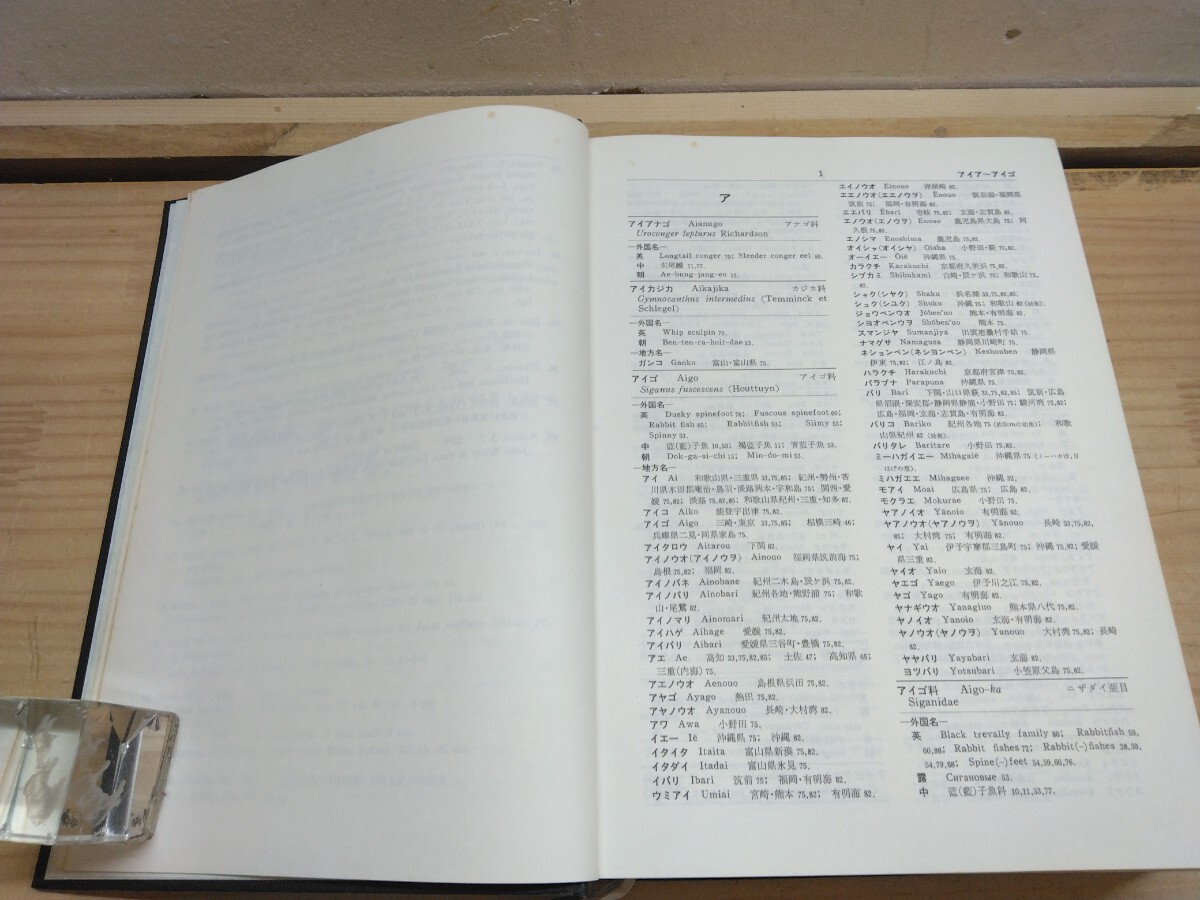 1
アイア～アイゴ
ア
アイアナゴ Aianago アナゴ科
Uroconger lepturus Richardson
―外国名―
英 Longtail conger 79; Slender conger eel 59.
中 尖尾鰻 11,77.
朝 Ae-bung-jang-eo 53.
アイカジカ Aikajika カジカ科
Gymnocanthus intermedius (Temminck et
Schlegel)
―外国名―
英 Whip sculpin 75.
朝 Ben-ten-ra-hoit-dae 53.
―地方名―
ガンコ Ganko 富山・富山県 75.
アイゴ Aigo アイゴ科
Siganus fuscescens (Houttuyn)
―外国名―
英 Dusky spinefoot 76; Fuscous spinefoot 60;
Rabbit fish 65; Rabbitfish 53; Slimy 53;
Spinny 53.
中 藍(籃)子魚 10,53; 褐藍子魚 11; 青藍子魚 53.
朝 Dok-ga-si-chi 13; Min-do-mi 53.
―地方名―
アイ Ai 和歌山県・三重県 33,75,85; 紀州・勢州・香
川県木田郡庵治・鳥羽・淡路洲本・宇和島 75; 関西・愛
媛 75,82; 淡路 75,82,85; 和歌山県紀州・三重・知多 82.
アイコ Aiko 能登宇出津 75,82.
アイゴ Aigo 三崎・東京 33,75,85; 相模三崎 46;
兵庫県二見・同県家島 75.
アイタロウ Aitarou 下関 82.
アイノウオ(アイノウヲ) Ainouo 福岡県筑前海 75;
島根 75,82; 福岡 82.
アイノバネ Ainobane 紀州二木島・辰ケ浜 75,82.
アイノバリ Ainobari 紀州各地・熊野灘 75; 和歌
山・尾鷲 82.
アイノマリ Ainomari 紀州太地 75,82.
アイハゲ Aihage 愛媛 75,82.
アイバリ Aibari 愛媛県三谷町・豊橋 75,82.
アエ Ae 高知 33,75,82,85; 土佐 47; 高知県 65;
三重(内海) 75.
アエノウオ Aenouo 島根県浜田 75,82.
アヤゴ Ayago 熱田 75,82.
アヤノウオ Ayanouo 長崎・大村湾 82.
アワ Awa 小野田 75.
イエー Iē 沖縄県 75; 沖縄 82.
イタイタ Itaita 富山県新湊 75,82.
イタダイ Itadai 富山県氷見 75.
イバリ Ibari 筑前 75; 福岡・有明海 82.
ウミアイ Umiai 宮崎・熊本 75,82; 有明海 82.
エイノウオ Einouo 津屋崎 82.
エエノウオ(エエノウヲ) Ēnouo 筑前海・福岡県
筑前 75; 福岡・有明海 82.
エエバリ Ēbari 壱岐 75,82; 玄海・志賀島 82.
エノウオ(エノウヲ) Enouo 鹿児島県大島 75; 阿
久根 75,82.
エノシマ Enoshima 鹿児島 75,82.
オイシャ(オイシヤ) Oisha 小野田・萩 75,82.
オーイエー Ōiē 沖縄県 75.
カラクチ Karakuchi 京都府久美浜 75,82.
シブカミ Shibukami 白崎・辰ケ浜 75; 和歌山 75,
82.
シャク(シヤク) Shaku 浜名湖 33,75,82,85.
シュク(シユク) Shuku 沖縄 75; 和歌山 82(幼魚).
ジョウベンウオ Jōben'uo 熊本・有明海 82.
シヨオベンウヲ Shōben'uo 熊本 75.
スマンジヤ Sumanjiya 出雲恵曇村手結 75.
ナマグサ Namagusa 静岡県川崎町 75.
ネションベン(ネシヨンベン) Neshonben 静岡県
伊東 75,82; 江ノ島 82.
ハラクチ Harakuchi 京都府宮津 75,82.
パラプナ Parapuna 沖縄県 75.
バリ Bari 下関・山口県萩 33,75,82,85; 筑前・広島
県沼隈・保安郡・静岡県静浦・小野田 75; 駿河湾 75,82;
広島・福岡・玄海・志賀島・有明海 82.
バリコ Bariko 紀州各地 75(約3cmの幼魚); 和歌
山県紀州 82(幼魚).
バリタレ Baritare 小野田 75,82.
ミーハガイエー Mīhagaiē 沖縄県 75(ミーハガは,目
はげの意).
ミハガエエ Mihagaee 沖縄 32.
モアイ Moai 広島県 75; 広島 82.
モクラエ Mokurae 小野田 75.
ヤアノイオ Yānoio 有明海 82.
ヤアノウオ(ヤアノウヲ) Yānouo 長崎 33,75,82,
85; 大村湾 75; 有明海 82.
ヤイ Yai 伊予宇摩郡三島町 75; 沖縄 75,82; 愛媛
県三重 82.
ヤイオ Yaio 玄海 82.
ヤエゴ Yaego 伊予川之江 75,82.
ヤゴ Yago 有明海 82.
ヤナギウオ Yanagiuo 熊本県八代 75,82.
ヤノイオ Yanoio 玄海・有明海 82.
ヤノウオ(ヤノウヲ) Yanouo 大村湾 75,82; 長崎
82.
ヤヤバリ Yayabari 玄海 82.
ヨツバリ Yotsubari 小笠原父島 75,82.
アイゴ科 Aigo-ka ニザダイ亜目
Siganidae
―外国名―
英 Black trevally family 80; Rabbitfish 59,
60,88; Rabbit fishes 72; Rabbit(-)fishes 28,59,
54,79,88; Spine(-)feet 54,59,60,76.
露 Сигановые 53.
中 藍(籃)子魚科 10,11,53,77.